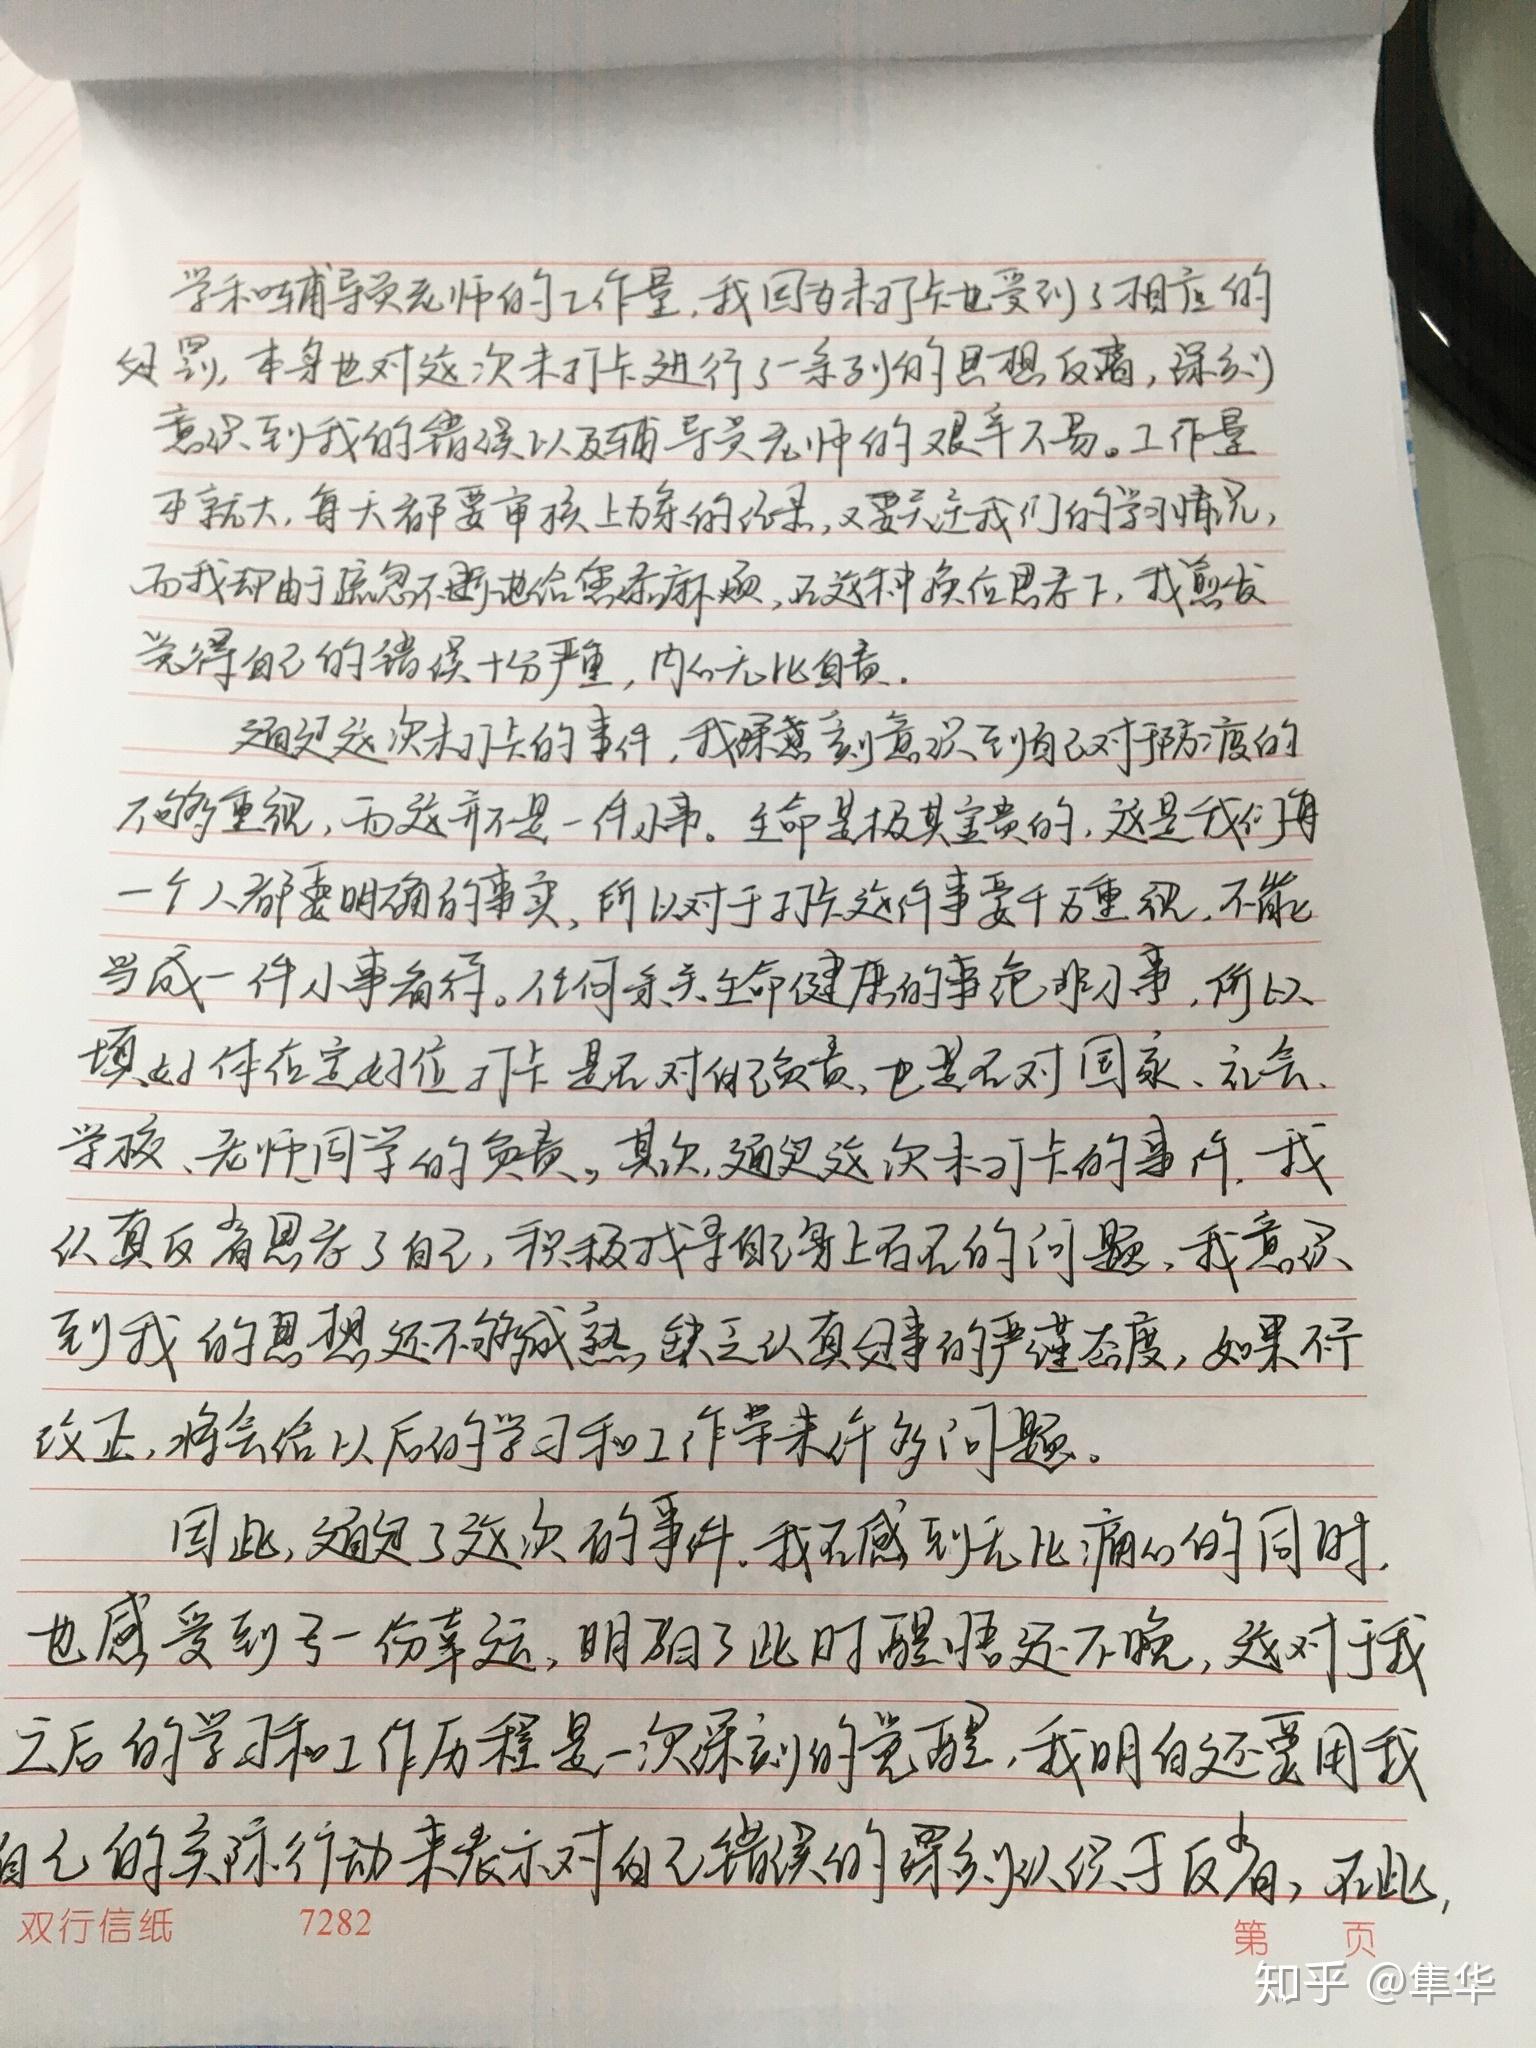 学和辅导员老师的工作量,我因为未打卡也受到了相应的
处罚,本身也对这次未打卡进行了一系列的思想反省,深刻
意识到我的错误以及辅导员老师的艰辛不易。工作量
本就大,每天都要审核上万条的信息,又要关注我们的学习情况,
而我却由于疏忽不断地给您添麻烦,在这种换位思考下,我愈发
觉得自己的错误十分严重,内心无比自责.
通过这次未打卡的事件,我深刻意识到自己对于防疫的
不够重视,而这并不是一件小事。生命是极其宝贵的,这是我们每
一个人都要明确的事实,所以对于打卡这件事要千万重视,不能
当成一件小事看待。任何系关生命健康的事绝非小事,所以
填好体检定好位打卡是在对自己负责,也是在对国家、社会、
学校、老师同学的负责。其次,通过这次未打卡的事件,我
认真反省思考了自己,积极找寻自己身上存在的问题,我意识
到我的思想还不够成熟,缺乏认真处事的严谨态度,如果不
改正,将会给以后的学习和工作带来许多问题。
因此,通过了这次的事件,我在感到无比痛心的同时,
也感受到了一份幸运,明白了此时醒悟还不晚,这对于我
之后的学习和工作历程是一次深刻的觉醒,我明白还要用我
自己的实际行动来表示对自己错误的深刻认识于反省,在此,
双行信纸 7282 第 页
知乎 @隼华